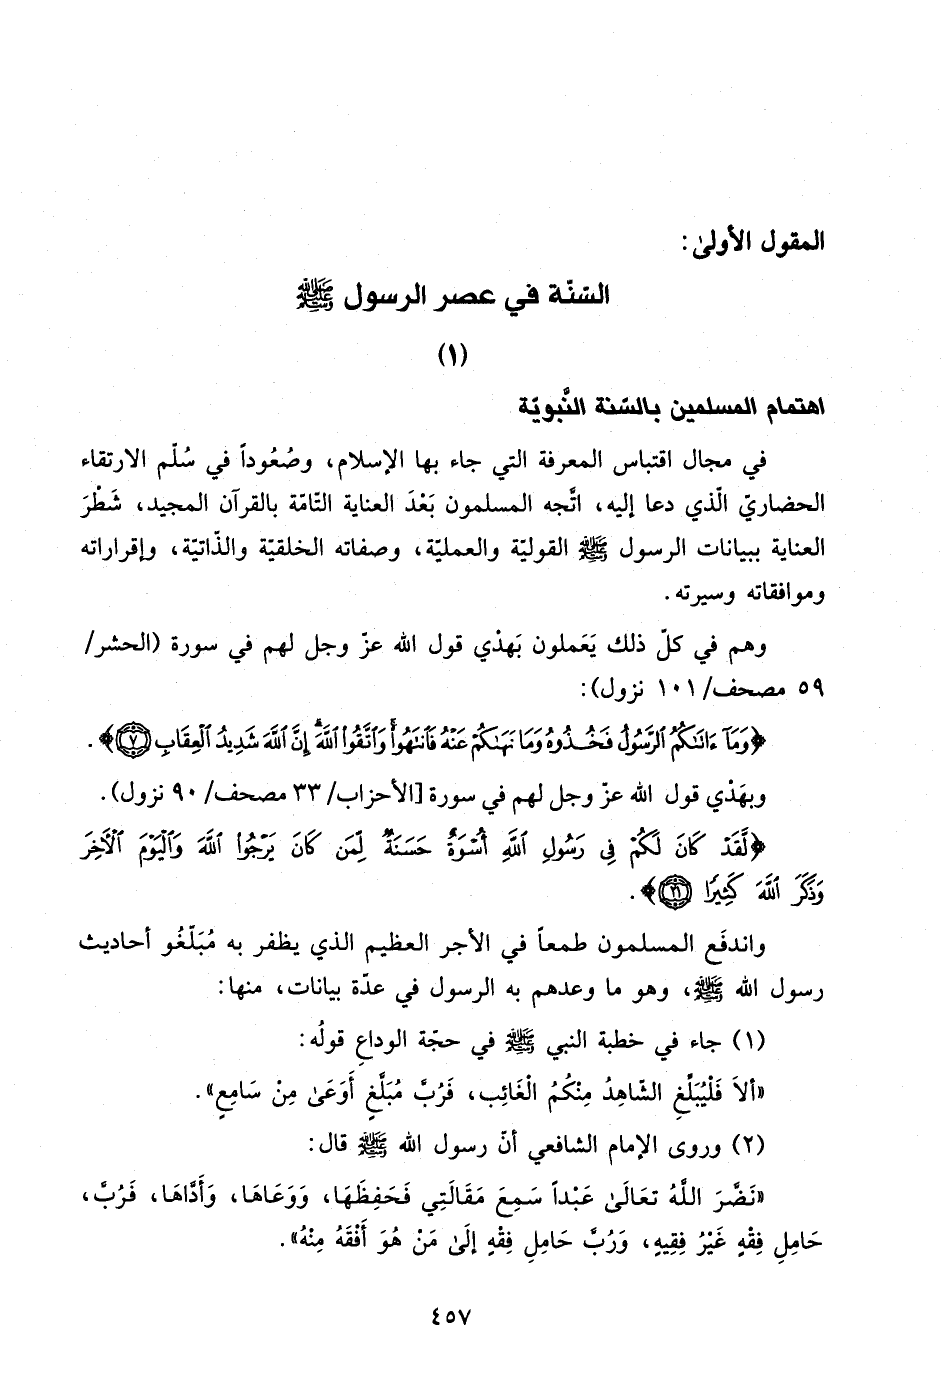 المقول الأولىٰ:
السّنّة في عصر الرسول ﷺ
(١)
اهتمام المسلمين بالسّنة النَّبويّة
في مجال اقتباس المعرفة التي جاء بها الإسلام، وصُعُوداً في سُلّم الارتقاء
الحضاريّ الّذي دعا إليه، اتَّجه المسلمون بَعْدَ العناية التّامّة بالقرآن المجيد، شَطْرَ
العناية ببيانات الرسول ﷺ القوليّة والعمليّة، وصفاته الخلقيّة والذّاتيّة، وإقراراته
وموافقاته وسيرته.
وهم في كلّ ذلك يَعَملون بَهدْي قول الله عزّ وجل لهم في سورة (الحشر/
٥٩ مصحف/ ١٠١ نزول):
﴿وَمَآ ءَاتَىٰكُمُ ٱلرَّسُولُ فَخُـذُوهُ وَمَا نَهَىٰكُمْ عَنْهُ فَٱنتَهُواْۚ وَٱتَّقُواْ ٱللَّهَۖ إِنَّ ٱللَّهَ شَدِيدُ ٱلْعِقَابِ ۝٧﴾.
وبهَدْي قول الله عزّ وجل لهم في سورة [الأحزاب/ ٣٣ مصحف/ ٩٠ نزول).
﴿لَّقَدْ كَانَ لَكُمْ فِى رَسُولِ ٱللَّهِ أُسْوَةٌ حَسَنَةٌ لِّمَن كَانَ يَرْجُواْ ٱللَّهَ وَٱلْيَوْمَ ٱلْأٓخِرَ
وَذَكَرَ ٱللَّهَ كَثِيرًا ۝٢١﴾.
واندفَع المسلمون طمعاً في الأجر العظيم الذي يظفر به مُبَلّغُو أحاديث
رسول الله ﷺ، وهو ما وعدهم به الرسول في عدّة بيانات، منها:
(١) جاء في خطبة النبي ﷺ في حجّة الوداعِ قولُه:
«ألاَ فَلْيُبَلِّغِ الشّاهِدُ مِنْكُمُ الْغَائِب، فَرُبَّ مُبَلَّغٍ أَوَعَىٰ مِنْ سَامِعٍ».
(٢) وروى الإمام الشافعي أنّ رسول الله ﷺ قال:
«نَضَّرَ اللَّهُ تعَالَىٰ عَبْداً سَمِعَ مَقَالَتِي فَحَفِظَهَا، وَوَعَاهَا، وَأَدَّاهَا، فَرُبَّ،
حَامِلِ فِقْهٍ غَيْرُ فِقِيهٍ، وَرُبَّ حَامِلِ فِقْهٍ إلَىٰ مَنْ هُوَ أَفْقَهُ مِنْهُ».
٤٥٧